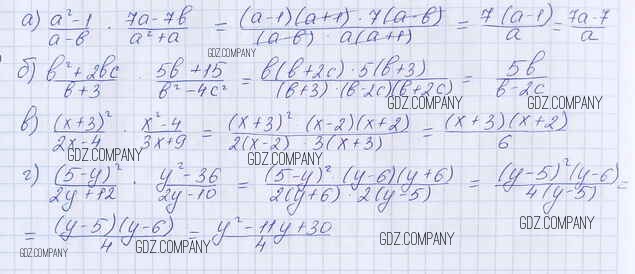 а) (a²-1)/(a-b) · (7a-7b)/(a²+a) = ((a-1)(a+1)·7(a-b))/((a-b)·a(a+1)) = 7(a-1)/a = (7a-7)/a
GDZ.COMPANY
б) (b²+2bc)/(b+3) · (5b+15)/(b²-4c²) = (b(b+2c)·5(b+3))/((b+3)·(b-2c)(b+2c)) = 5b/(b-2c)
GDZ.COMPANY GDZ.COMPANY
в) (x+3)²/(2x-4) · (x²-4)/(3x+9) = ((x+3)²(x-2)(x+2))/(2(x-2)·3(x+3)) = ((x+3)(x+2))/6
GDZ.COMPANY GDZ.COMPANY
г) (5-y)²/(2y+12) · (y²-36)/(2y-10) = ((5-y)²(y-6)(y+6))/(2(y+6)·2(y-5)) = ((y-5)²(y-6))/(4(y-5)) =
= ((y-5)(y-6))/4 = (y²-11y+30)/4
GDZ.COMPANY GDZ.COMPANY GDZ.COMPANY GDZ.COMPANY